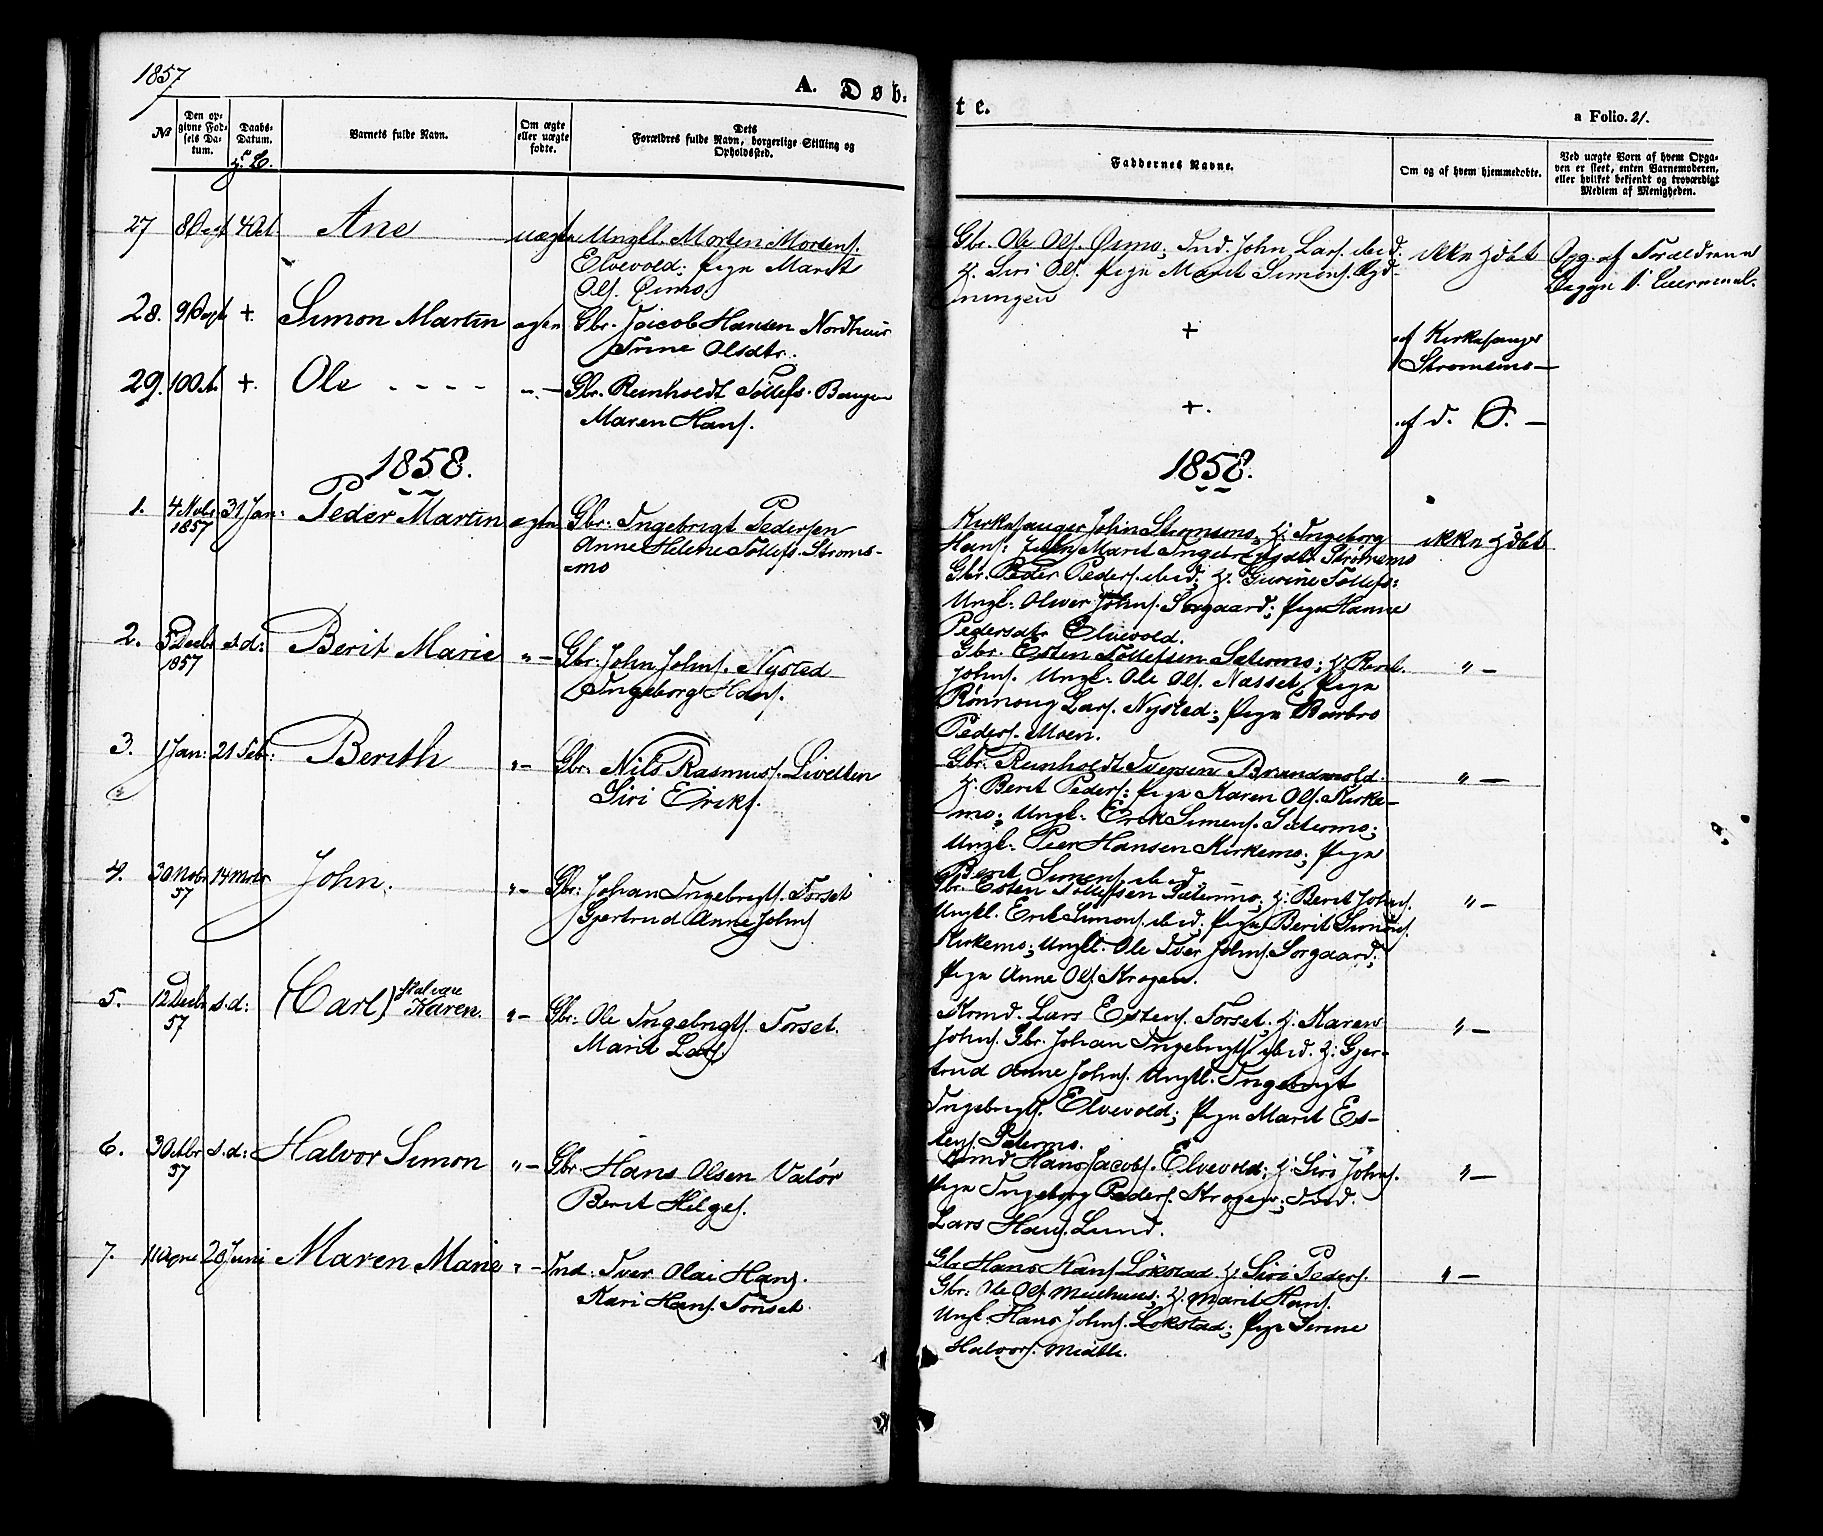 1857
A. Døb-
te.
a Folio. 21.
№
Den op-
givne Fød-
sels Da-
tum.
Daabs-
Datum.
Barnets fulde Navn.
Om ægte
eller uægte
fødte.
Dets
Forældres fulde Navn, borgerlige Stilling og
Opholdssted.
Faddernes Navne.
Om og af hvem hjemmedøbte.
Ved uægte Børn af hvem Opga-
ven er skeet, enten Barnemoderen,
eller hvilket bekjendt og troværdigt
Medlem af Menigheden.
27 8 Sept 4 Oct Ane uægte Ungkl. Morten Mortens.
Elvevold: Pige Marit
Ols. Øimo.
Gbr. Ole Ols. Øimo; Ind. John Lars. ibid.
K. Siri Ols. Pige Marit Simons. Ryd-
ningen
ikke hjdbt
Opg. af Forældrene
28. 9 Sept +. Simon Martin ægte Gbr. Jacob Hansen Nordhuus
Trine Olsdtr.
+
af Kirkesanger
Strømsmo —
29. 10 Oct. +. Ole - - - - „ — Gbr. Reinholdt Tollefs. Bangen
Maren Hans.
+.
af d. S. —
1858. 1858.
1. 4 Nobr 1857 31 Jan: Peder Martin ægte Gbr: Ingebrigt Pedersen
Anne Helene Tollefs. Strøms-
mo
Kirkesanger John Strømsmo, K. Ingeborg
Hans: Pige Marit Ingebrigtsdtr Strømsmo
Gbr. Peder Peders. ibid; K. Gurine Tollefs:
Ungk: Oliver Johns. Sørgaard; Pige Hanne
Pedersdtr Elvevold.
ikke hjdbt
2. 5 Decbr 1857 s.d: Berit Marie „ — Gbr: John Johns. Nysted
Ingeborg Hans.
Gbr. Esten Tollefsen Sætermo; K. Berit
Johns. Ungk: Ole Ols. Næsset, Pige
Rønnoug Lars. Nysted; Pige Barbro
Peders. Moen.
„ —
3. 1 Jan: 21 Febr: Berith „ — Gbr: Nils Rasmuss. Livelten
Siri Eriks.
Gbr: Reinholdt Iversen Brandvold
K. Berit Peders: Pige Karen Ols. Kirke-
mo; Ungk: Erik Simons. Sætermo;
Ungk: Peer Hansen Kirkemo; Pige
Berit Simons. ibid
„ —
4. 30 Nobr 57 14 Marts John. „ — Gbr: Johan Ingebrigts. Forset
Gjertrud Anne Johns
Gbr. Esten Tollefsen Sætermo; K. Berit Johns.
Ungkl. Erik Simons. ibid; Pige Berit Simons.
Kirkemo; Ungkl. Ole Iver Johns. Sørgaard;
Pige Anne Ols. Krogen.
„ —
5. 12 Decbr 57 s.d: (Carl) skal være Karen. „ — Gbr: Ole Ingebrigts. Forset.
Marit Lars.
Kmd. Lars Estens. Forset; K. Karen
Johns. Gbr. Johan Ingebrigts. ibid. K: Gjer-
trud Anne Johns. Ungkl. Ingebrigt
Ingebrigts. Elvevold; Pige Marit Es-
tens. Sætermo.
„ —
6. 3 Octbr 57 s.d: Halvor Simon „ — Gbr. Hans Olsen Valør
Berit Helges.
Hans Jacobs. Elvevold; K. Siri Johns.
Pige Ingeborg Peders. Krogen; Ind.
Lars Hans. Lund.
„ —
7. 20 Juni Maren Marie „ — Ind. Iver Olai Hans.
Kari Hans. Forset.
Gbr Hans Hans. Løkstad K. Siri Peders.
Gbr: Ole Ols. Midthuus; K. Marit Hans.
Ungk. Hans Johns. Løkstad; Pige Serine
Halvors. Midtli.
„ —